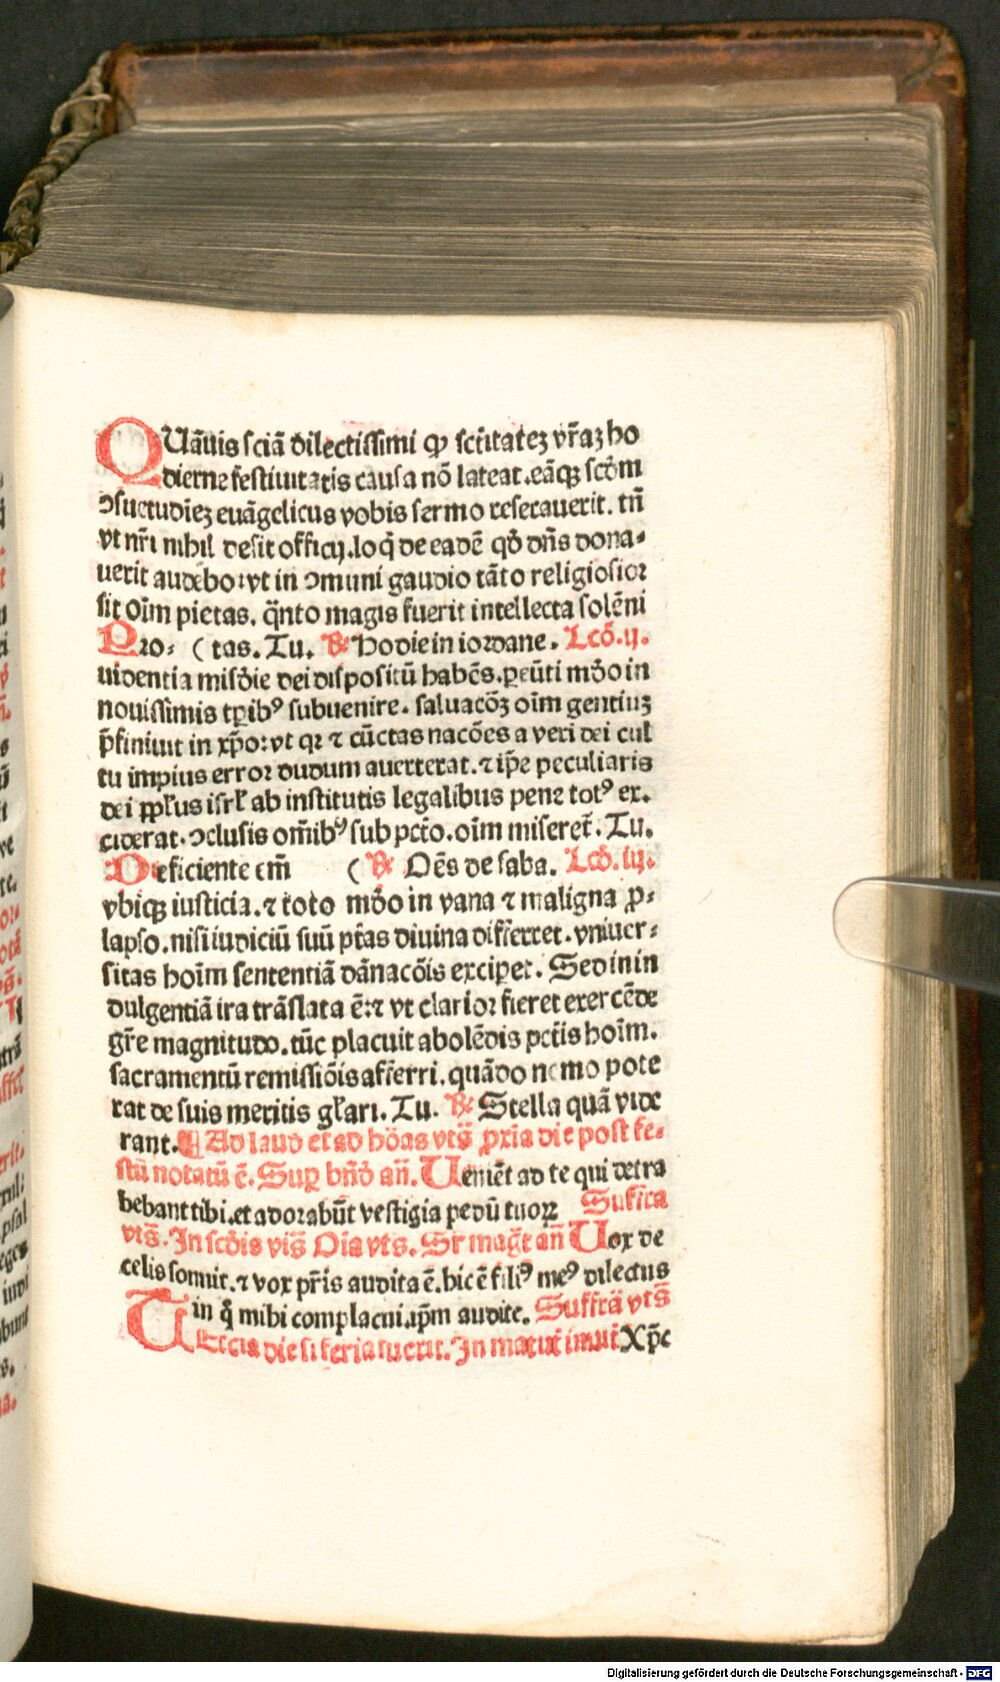 QUãuis sciã dilectissimi ꝙ scti̅tateꝫ vr̃aꝫ ho
dierne festiuitatis causa nõ lateat. eãqꝫ sc̃dm
ↄsuetudieꝫ euãgelicus vobis sermo reserauerit. tñ
vt nr̃i nihil desit officij. loq̃ de eadẽ qd̃ dñs dona-
uerit audebo: vt in ↄmuni gaudio tãto religiosior
sit oĩm pietas. q̃nto magis fuerit intellecta solẽni
Pro- ( tas. Tu. ℟ Hodie in iordane. Lcõ. ij.
uidentia misc̃die dei dispositũ habẽs. peũti mũdo in
nouissimis tꝑibꝰ subuenire. saluacõꝫ oĩm gentiuꝫ
p̃finiuit in xp̃o: vt qꝛ ⁊ cũctas nacões a veri dei cul
tu impius error dudum auerterat. ⁊ ip̃e peculiaris
dei pp̃lus isrł ab institutis legalibus pene totꝰ ex.
ciderat. ↄclusis om̃ibꝰ sub pctõ. oĩm miseret̃. Tu.
Deficiente em̃ ( ℟ Oẽs de saba. Lcõ. iij.
vbiqꝫ iusticia. ⁊ toto mũdo in vana ⁊ maligna ꝓ-
lapso. nisi iudiciũ suũ ptãs diuina differret. vniuer-
sitas hoĩm sententiã dãnacõis exciperet. Sed in in
dulgentiã ira trãslata ẽ: ⁊ vt clarior fieret exercẽde
gr̃e magnitudo. tũc placuit abolẽdis pctĩs hoĩm.
sacramentũ remissiõis afferri. quãdo nemo pote
rat de suis meritis głari. Tu. ℟ Stella quã vide
rant. ¶ Ad laud et ad hõas vts̃ ꝓxĩa die post fe-
stũ notatũ ẽ. Suꝑ bñd añ. Ueniẽt ad te qui detra
bebant tibi. et adorabũt vestigia pedũ tuoꝝ Suffrã
vts̃. In sc̃dis vis̃ Oĩa vts. Sr̃ mag̃t añ Uox de
celis sonuit. ⁊ vox pr̃is audita ẽ. hic ẽ filiꝰ meꝰ dilectus
in q̃ mihi complacui. ip̃m audite. Suffrã vts̃
UEtia die si feria fuerit. In matut̃ imuit̃ Xp̃c
Digitalisierung gefördert durch die Deutsche Forschungsgemeinschaft - DFG